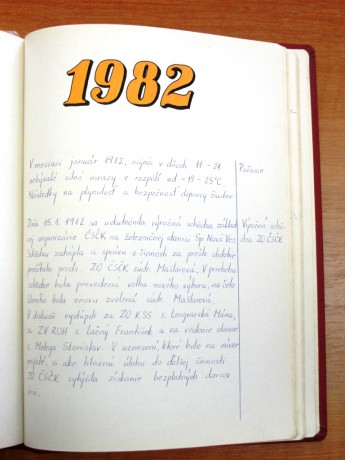 1982
V mesiaci január 1982, najmä v dňoch 11. - 21.
nebývalé silné mrazy v rozpätí od -19 - 25°C
Následky na plynulosť a bezpečnosť dopravy žiadne
Počasie
Dňa 15.1.1982 sa uskutočnila výročná schôdza základ
nej organizácie ČSČK na železničnej stanici Sp. Nová Ves
Schôdzu zahájila a správu o činnosti za prešlé obdobie
prečítala preds. ZO ČSČK súdr. Mašlárová. V priebehu
schôdze bola prevedená voľba nového výboru, na čelo
ktorého bola znovu zvolená súdr. Mašlárová
V diskusii vystúpili za ZO KSS s. Longvarská Mária,
a ZV ROH s. Lačný František a za vedenie stanice
s. Melega Stanislav. V uznesení, ktoré bolo na záver
prijaté, si ako hlavnú úlohu do ďalšej činnosti
ZO ČSČK vytýčila získanie bezplatných darcov
krvi.
Výročná schô
dza ZO ČSČK